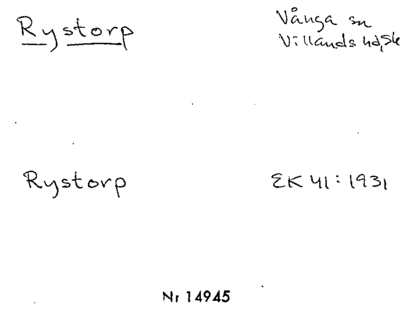 Rystorp
Vånga sn
Villands hd, Sk
Rystorp
EK 41 : 1931
Nr 14945